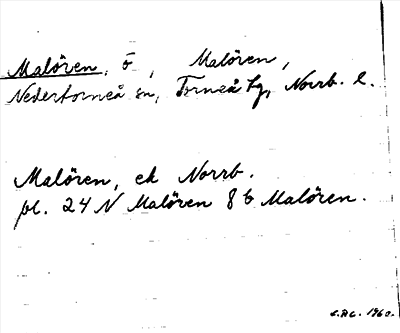 Malören, ö, Malören,
Nedertorneå sn, Torneå tg, Norrb. l.
Malören, ek Norrb.
pl. 24 N Malören 8 b Malören.
1960.